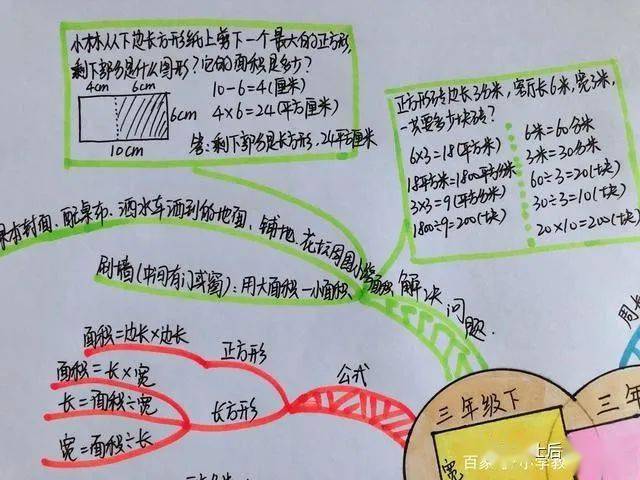 小林从下边长方形纸上剪下一个最大的正方形,
剩下部分是什么图形?它的面积是多少?
4cm 6cm
6cm
10cm
10-6=4(厘米)
4×6=24(平方厘米)
答:剩下部分是长方形,24平方厘米
正方形砖边长3分米,客厅长6米,宽3米,
一共要多少块砖?
6×3=18(平方米)
18平方米=1800平方分米
3×3=9(平方分米)
1800÷9=200(块)
6米=60分米
3米=30分米
60÷3=20(块)
30÷3=10(块)
20×10=200(块)
课本封面、配桌布、洒水车洒到的地面、铺地、花坛周围小路面积
刷墙(中间有门或窗):用大面积-小面积
解决问题.
面积=边长×边长
正方形
面积=长×宽
长=面积÷宽
宽=面积÷长
长方形
公式
三年级下
三年
周长
宽
上后
百家号 小学教